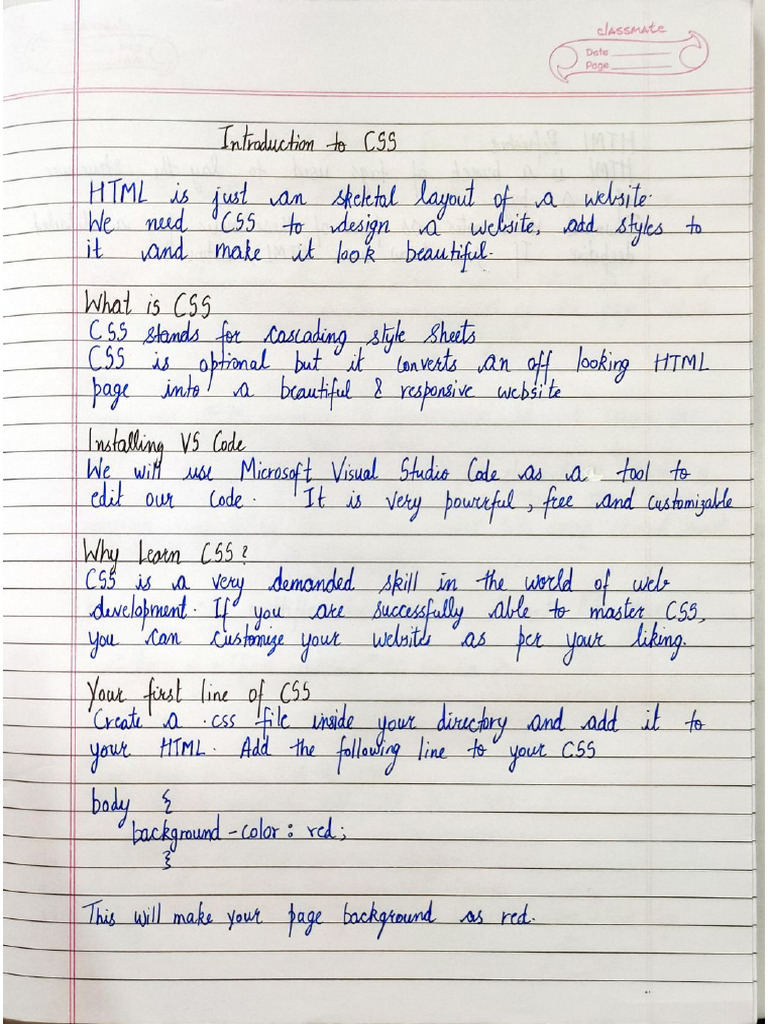 classmate
Date
Page
Introduction to CSS
HTML is just an skeletal layout of a website.
We need CSS to design a website, add styles to
it and make it look beautiful.
What is CSS
CSS stands for cascading style sheets
CSS is optional but it converts an off looking HTML
page into a beautiful & responsive website
Installing VS Code
We will use Microsoft Visual Studio Code as a tool to
edit our code. It is very powerful, free and customizable
Why Learn CSS?
CSS is a very demanded skill in the world of web
development. If you are successfully able to master CSS,
you can customize your websites as per your liking.
Your first line of CSS
Create a .css file inside your directory and add it to
your HTML. Add the following line to your CSS
body {
background-color: red;
}
This will make your page background as red.